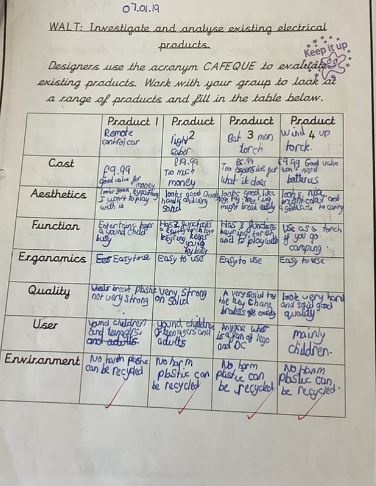 07.01.19
WALT: Investigate and analyse existing electrical
products.
Keep it up
Designers use the acronym CAFEQUE to evaluate
existing products. Work with your group to look at
a range of products and fill in the table below.
Product 1
Remote
control car
Product
2
light
saber
Product
Bat 3 man
torch
Product
Wind 4 up
torch.
Cost
£9.99
Good value for money
£19.99
Too much
money
£5.99
what it does
£9.99 Good value
don't need
batteries
Aesthetics
looks good
I want to play
with it
looks good
solid
looks good
might break easily
looks
bright colour and
to carry
Function
Entertains
a young child
busy
Has 2 functions
Has 2 functions
keyring torch
and to play with
Use as a torch
if you go
camping
Ergonomics
Easy to use
Easy to use
Easy to use
Easy to use
Quality
break plastic
not very strong
Very strong
solid
A very solid toy
the key chain
breaks easily
look very hard
and good
quality
User
young children
and teenagers
and adults
young children
teenagers and
adults
Anyone who
is a fan of lego
and DC
mainly
children.
Environment
No harm plastic
can be recycled
No harm
plastic can
be recycled
No harm
plastic can
be recycled
No harm
plastic can
be recycled.